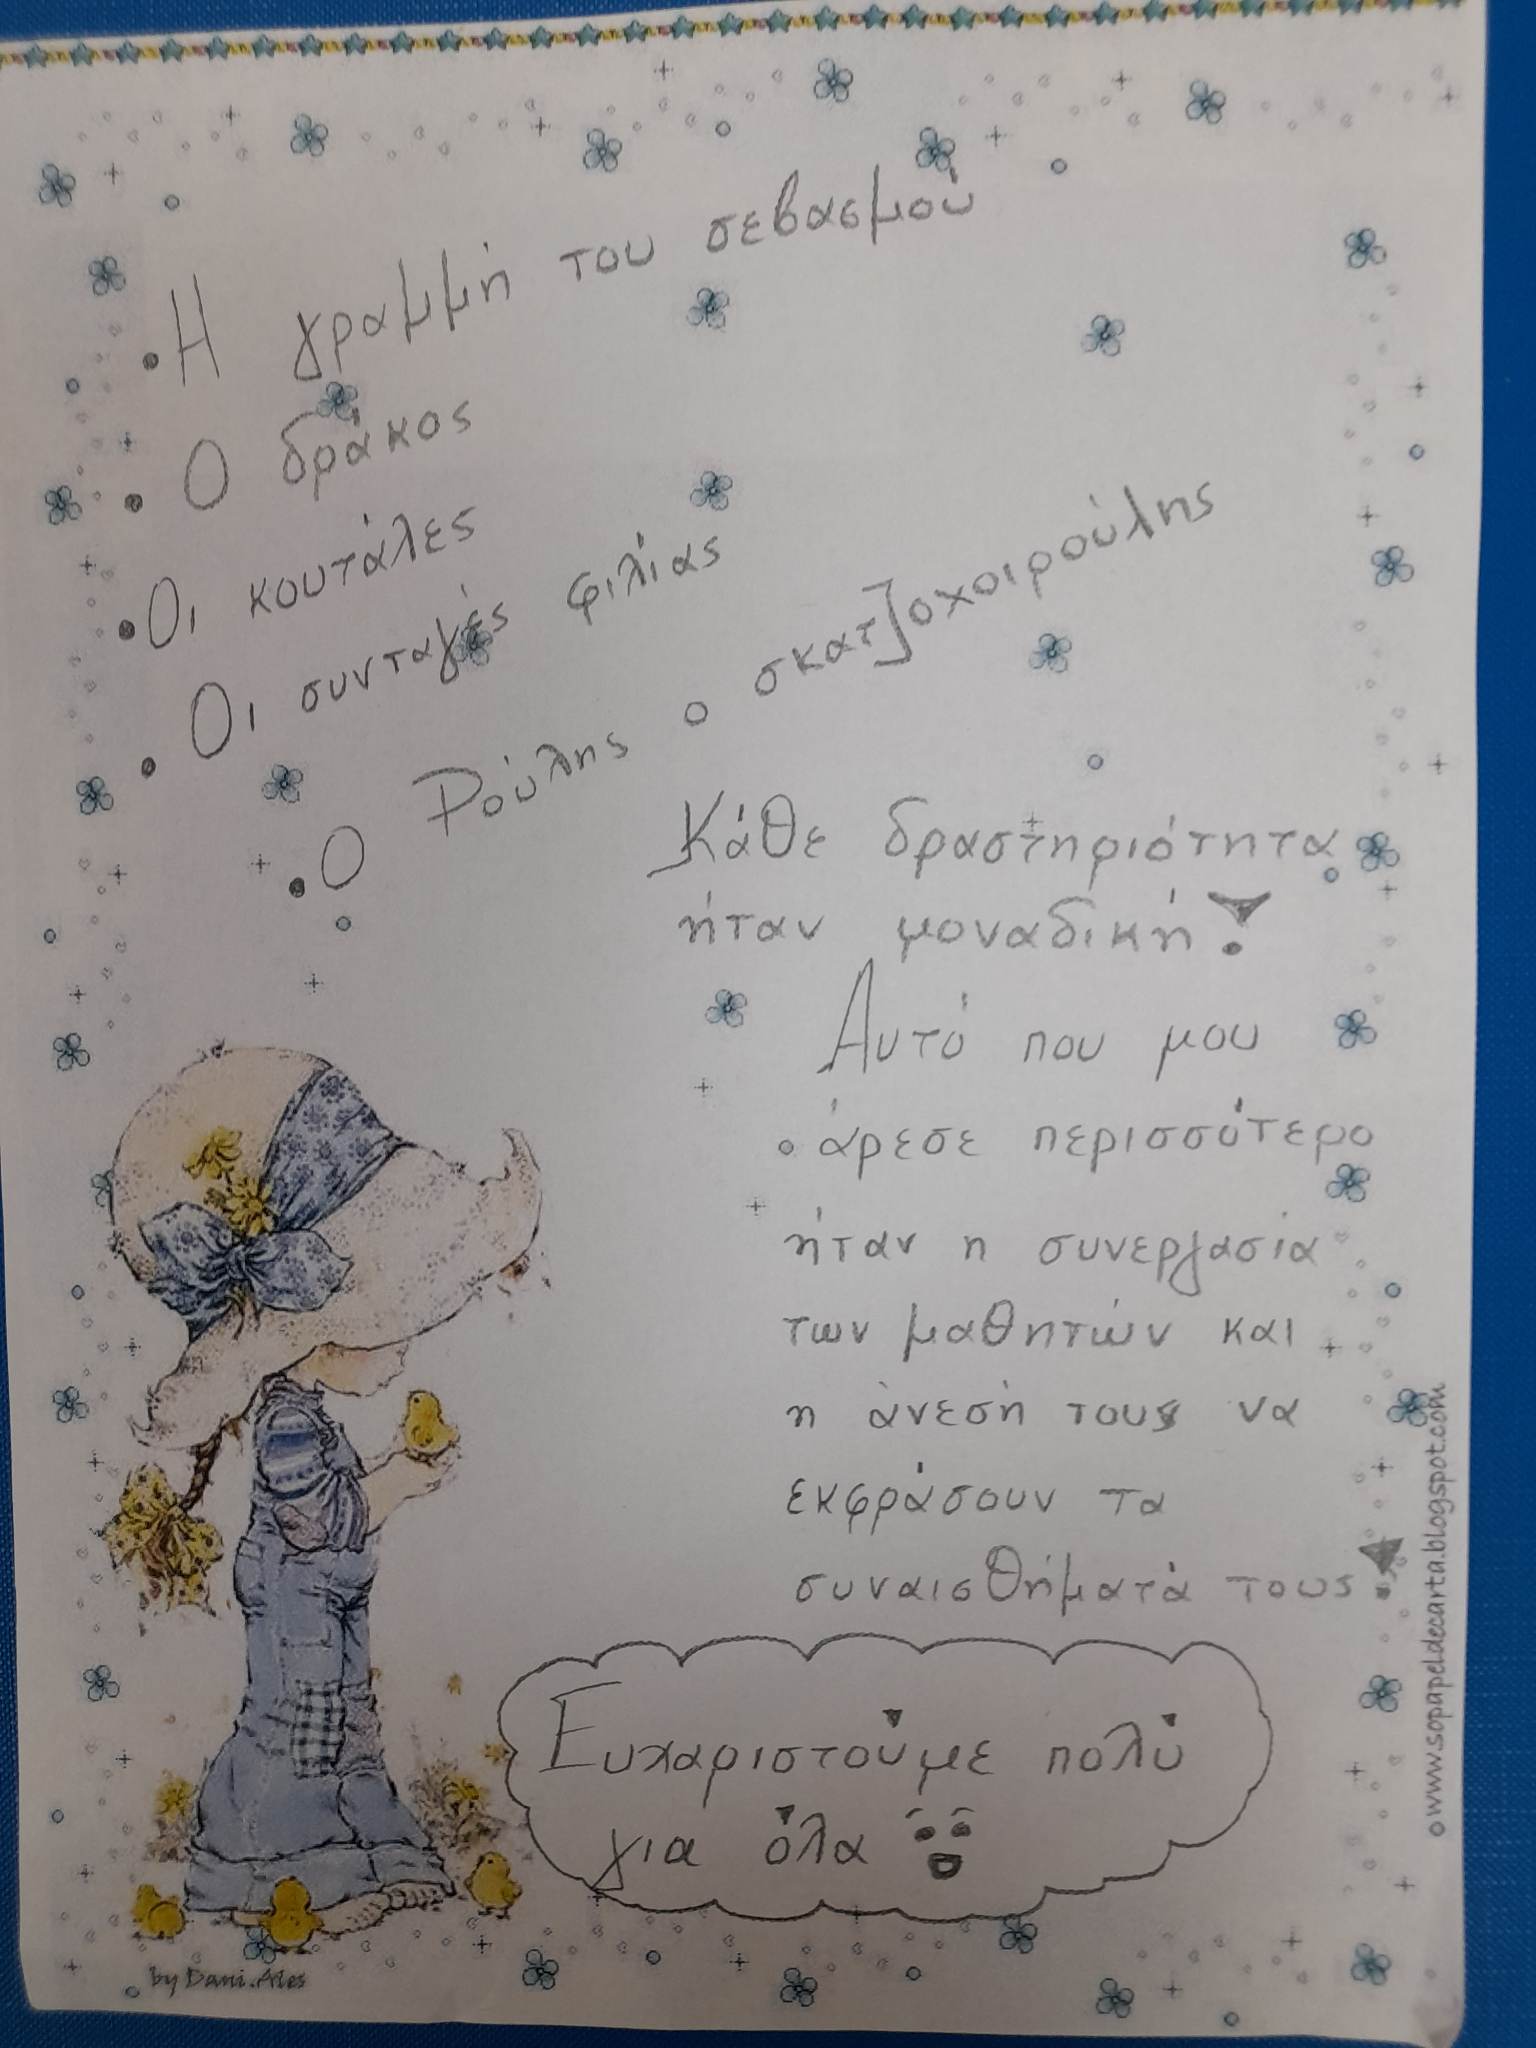 •Η γραμμή του σεβασμού
• Ο δράκος
•Οι κουτάλες
• Οι συνταγές φιλίας
•Ο Ρούλης ο σκατζοχοιρούλης
Κάθε δραστηριότητα
ήταν μοναδική!
Αυτό που μου
άρεσε περισσότερο
ήταν η συνεργασία
των μαθητών και
η άνεσή τους να
εκφράσουν τα
συναισθήματά τους!
Ευχαριστούμε πολύ
για όλα
by Dani.Ales
www.sopapeldecarta.blogspot.com